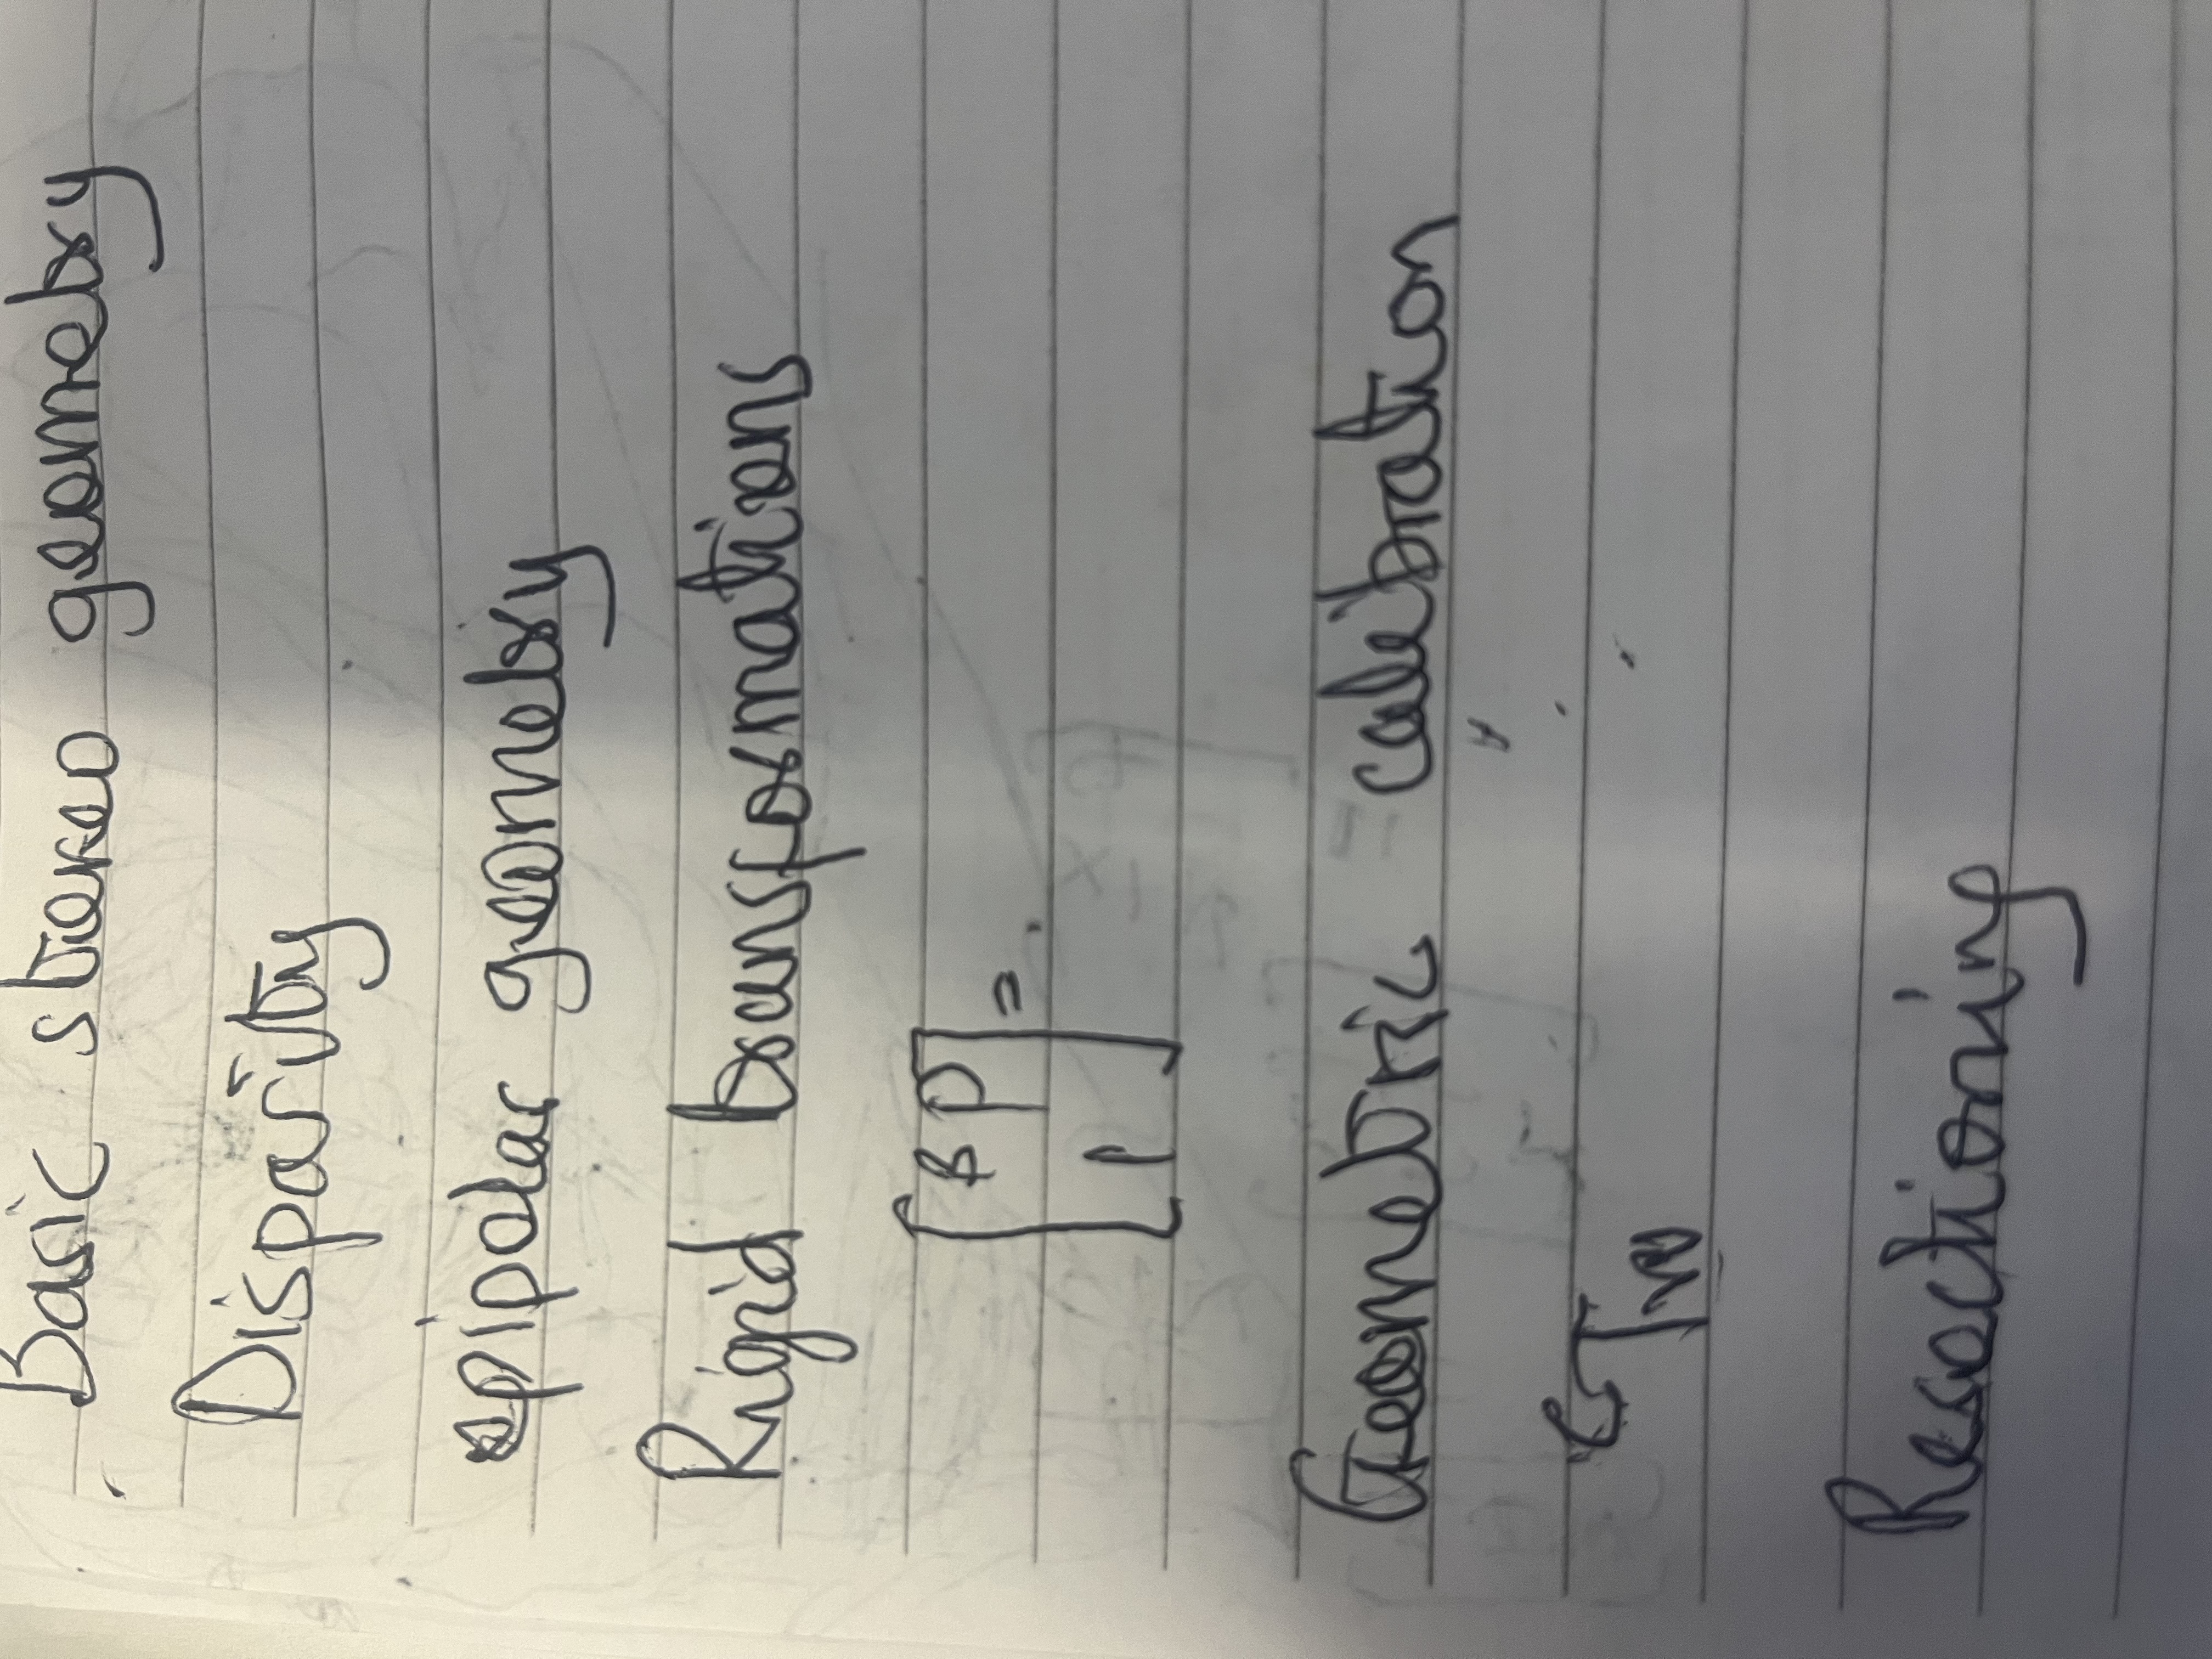 Basic stereo geometry
Disparity
epipolar geometry
Rigid transformations
[ᴮP
1] =.
Geometric calibration
ᶜTw
Resectioning